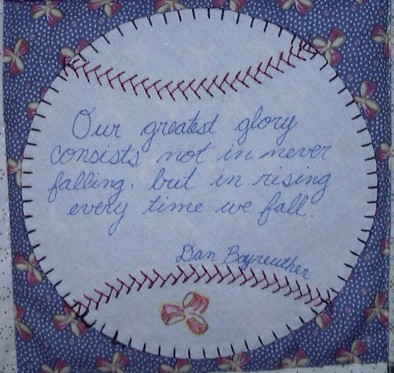 Our greatest glory
consists not in never
falling, but in rising
every time we fall.
Dan Bayreuther